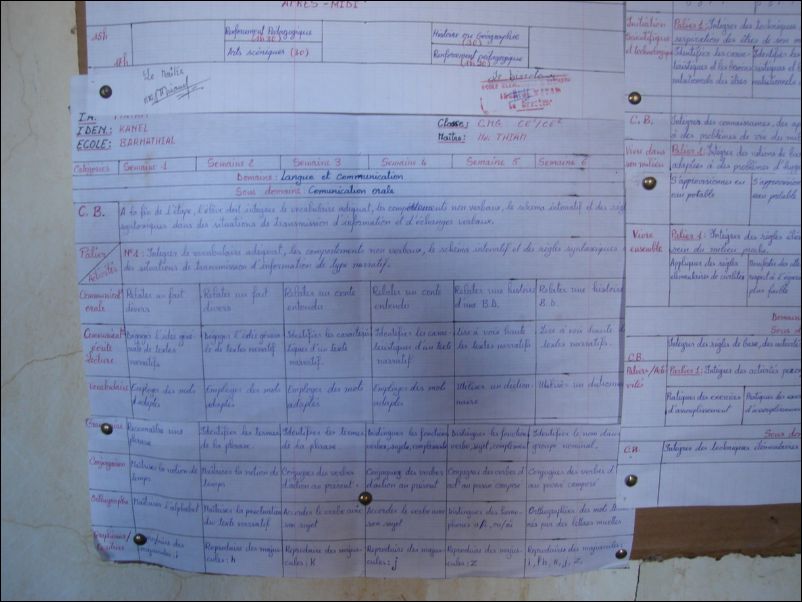 APRES-MIDI
15h
17h
Renforcement Pédagogique
(1h30)
Arts scéniques (30)
Histoire ou Géographie
(30)
Renforcement pédagogique
(1h30)
Le Maître
Le Directeur
I.A.
IDEN: KANEL
ECOLE: BARMATHIAL
Classe: C.M.G CE1/CE2
Maître: Mr. THIAM
Semaine 1 Semaine 2 Semaine 3 Semaine 4 Semaine 5 Semaine 6
Domaine: Langue et Communication
Sous domaine: Comunication orale
C.B. A la fin de l'étape, l'élève doit intégrer le vocabulaire adéquat, les comportements non verbaux, le schéma intonatif et des règles
syntaxiques dans des situations de transmission d'information et d'échanges verbaux.
Palier
Activités
N°1: Intégrer le vocabulaire adéquat, les comportements non verbaux, le schéma intonatif et des règles syntaxiques
des situations de transmission d'information de type narratif.
Communicat°
orale
Relater un fait
divers
Relater un fait
divers
Relater un conte
entendu
Relater un conte
entendu
Relater une histoire
d'une B.D.
Relater une histoire
B.D.
Communicat°
écrite
lecture
Dégager l'idée géné-
rale de textes
narratif
Dégager l'idée généra-
le de textes narratif
Identifier les caractéris-
tiques d'un texte
narratif.
Identifier les carac-
téristiques d'un texte
narratif
Lire à voix haute
les textes narratifs
Lire à voix haute
textes narratifs.
Vocabulaire
Employer des mots
adaptés
Employer des mots
adaptés
Employer des mots
adaptés
Employer des mots
adaptés
Utiliser un diction-
naire
Utiliser un dictionnaire
Grammaire
Reconnaître une
phrase
Identifier les termes
de la phrase.
Identifier les termes
de la phrase
Distinguer les fonctions
verbe, sujet, complément
Distinguer les fonctions
verbe, sujet, complément
Identifier le nom dans
groupe nominal.
Conjugaison
Maîtriser la notion de
temps
Maîtriser la notion de
temps
Conjuguer des verbes
d'action au présent.
Conjuguer des verbes
d'action au présent
Conjuguer des verbes d'
act° au passé composé
Conjuguer des verbes d'
au passé composé
Orthographe
Maîtriser l'alphabet
Maîtriser la ponctuation
du texte narratif
Accorder le verbe avec
son sujet
Accorder le verbe avec
son sujet
Distinguer des homo-
phones a/à, ou/où
Orthographier des mots
par des lettres muettes
majuscules: i
Reproduire des majus-
cules: h
Reproduire des majus-
cules: K
Reproduire des majus-
cules: j
Reproduire des majus-
cules: Z
Reproduire des majuscules:
i, h, K, j, Z
Initiation
Scientifique
et technologique
Palier 1: Intégrer des techniques
C.B.
Intégrer des connaissances, des
à des problèmes de vie du
Vivre dans
son milieu
adaptées à des problèmes d'
S'approvisionner en
eau potable
S'approvisionner
eau potable
Vivre
ensemble
Palier 1: Intégrer des règles
sein du milieu proche.
Appliquer des règles
élémentaires de civilités
plus faible
Domaine
Sous
C.B.
Intégrer des règles de base, des activités
Palier/Acti-
vités
Palier 1: Intégrer des activités
Pratiquer des exercices
d'assouplissement
Pratiquer des exercices
d'assouplissement
Sous dom
C.B.
Intégrer des techniques élémentaires